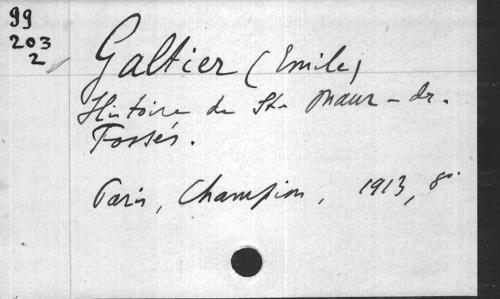 99
203
2
Galtier (Emile)
Histoire de St Maur-des-
Fossés.
Paris, Champion, 1913, 8°